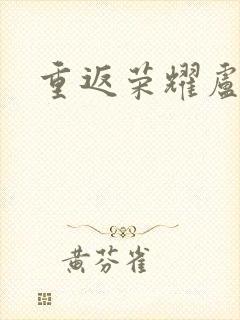 重返荣耀盧
黄芬雀